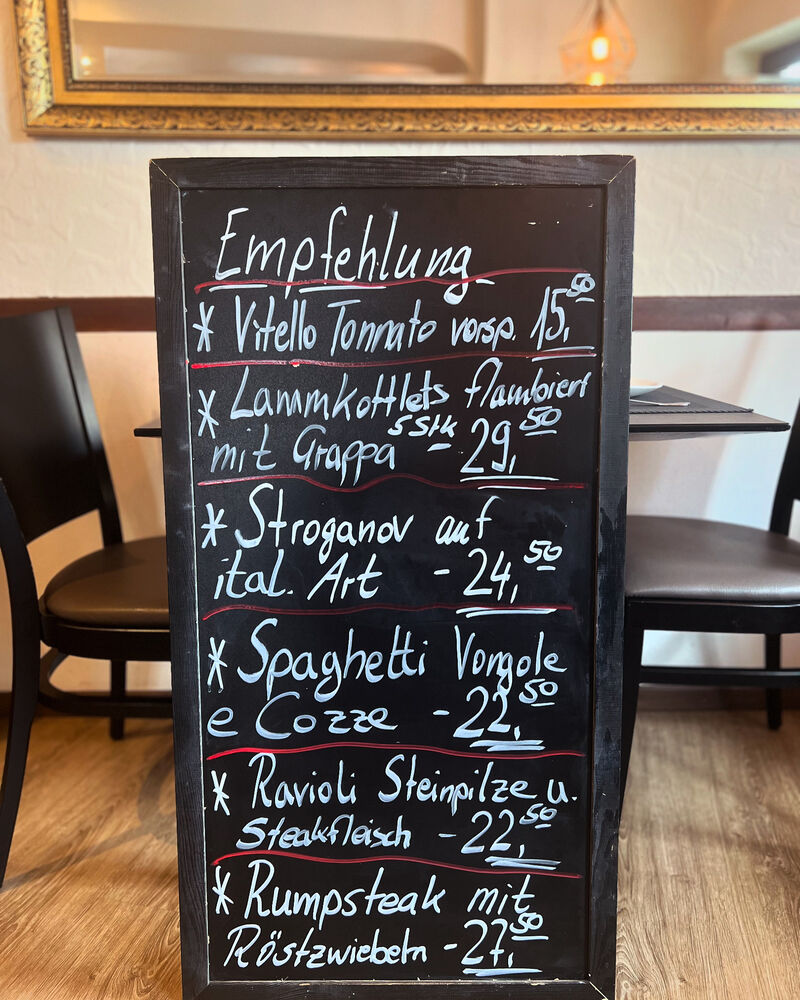 Empfehlung
* Vitello Tonnato vorsp. 15,50
* Lammkottlets flambiert
mit Grappa 5 Stk - 29,50
* Stroganov auf
ital. Art - 24,50
* Spaghetti Vongole
e Cozze - 22,50
* Ravioli Steinpilze u.
Steakfleisch - 22,50
* Rumpsteak mit
Röstzwiebeln - 27,50